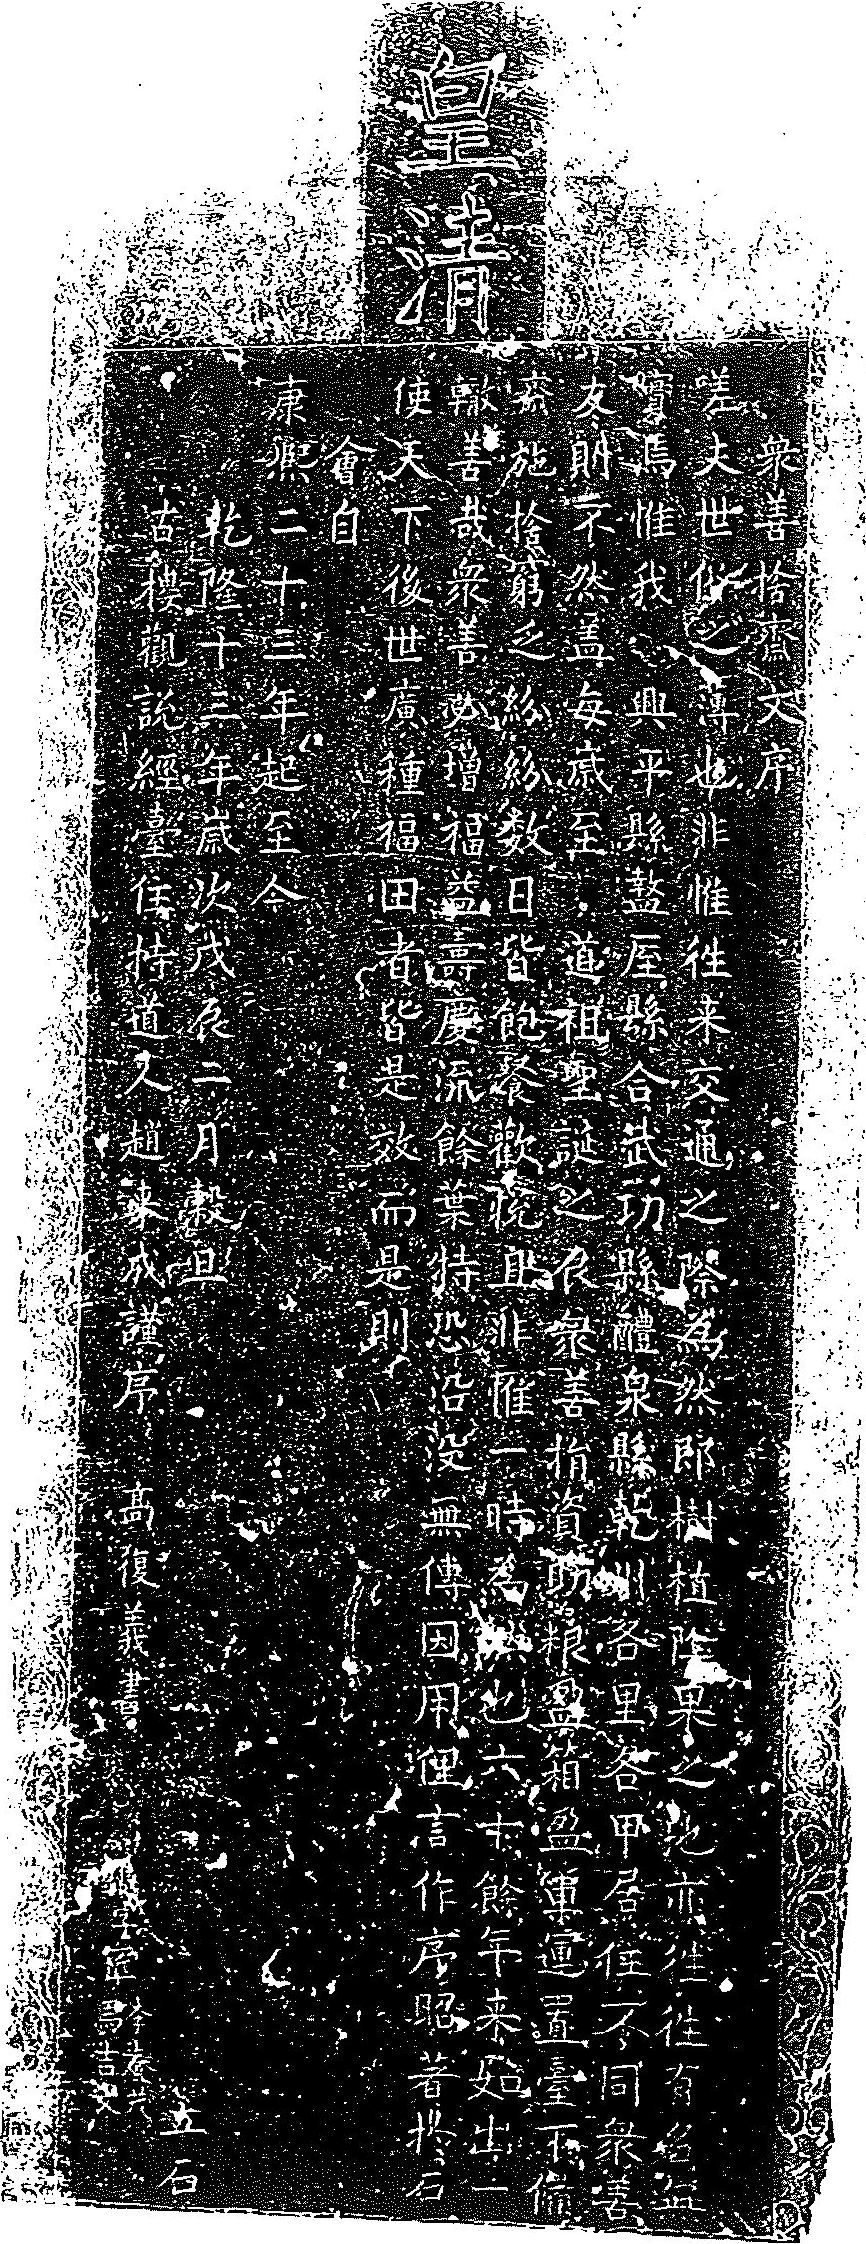 皇清
衆善捨齋文序
嗟夫世俗之薄也非惟徃来交通之際為然即樹植陰果之地亦徃徃有名無
實焉惟我興平縣盩厔縣合武功縣醴泉縣乾州各里各甲居住不同衆善
友則不然盖每歲至道祖聖誕之辰衆善捐資助粮盈箱盈車運置臺下俻
齋施捨窮乏紛紛数日皆飽餐歡悅且非惟一時為也六十餘年来如出一
轍善哉衆善必增福益壽慶流餘葉特恐沿没無傳因用俚言作序昭著扵石
使天下後世廣種福田者皆是效而是則
會自
康熙二十三年起至今
乾隆十三年歲次戊辰二月穀旦
立石
古樓觀說經臺住持道人趙来成謹序 高復義書